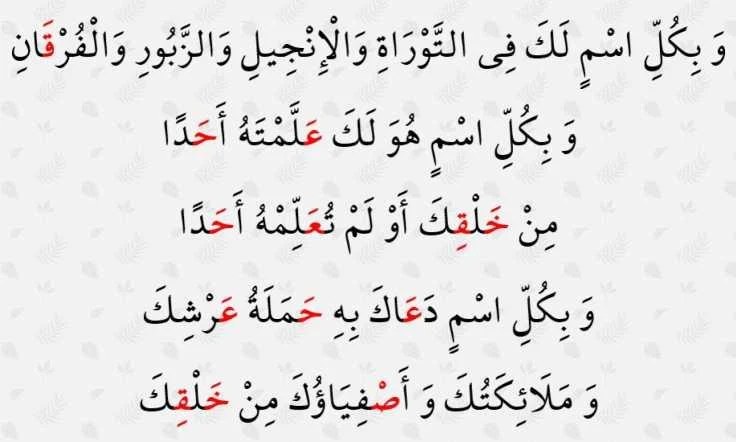 وَ بِكُلِّ اسْمٍ لَكَ فِى التَّوْرَاةِ وَالْإِنْجِيلِ وَالزَّبُورِ وَالْفُرْقَانِ
وَ بِكُلِّ اسْمٍ هُوَ لَكَ عَلَّمْتَهُ أَحَدًا
مِنْ خَلْقِكَ أَوْ لَمْ تُعَلِّمْهُ أَحَدًا
وَ بِكُلِّ اسْمٍ دَعَاكَ بِهِ حَمَلَةُ عَرْشِكَ
وَ مَلَائِكَتُكَ وَ أَصْفِيَاؤُكَ مِنْ خَلْقِكَ